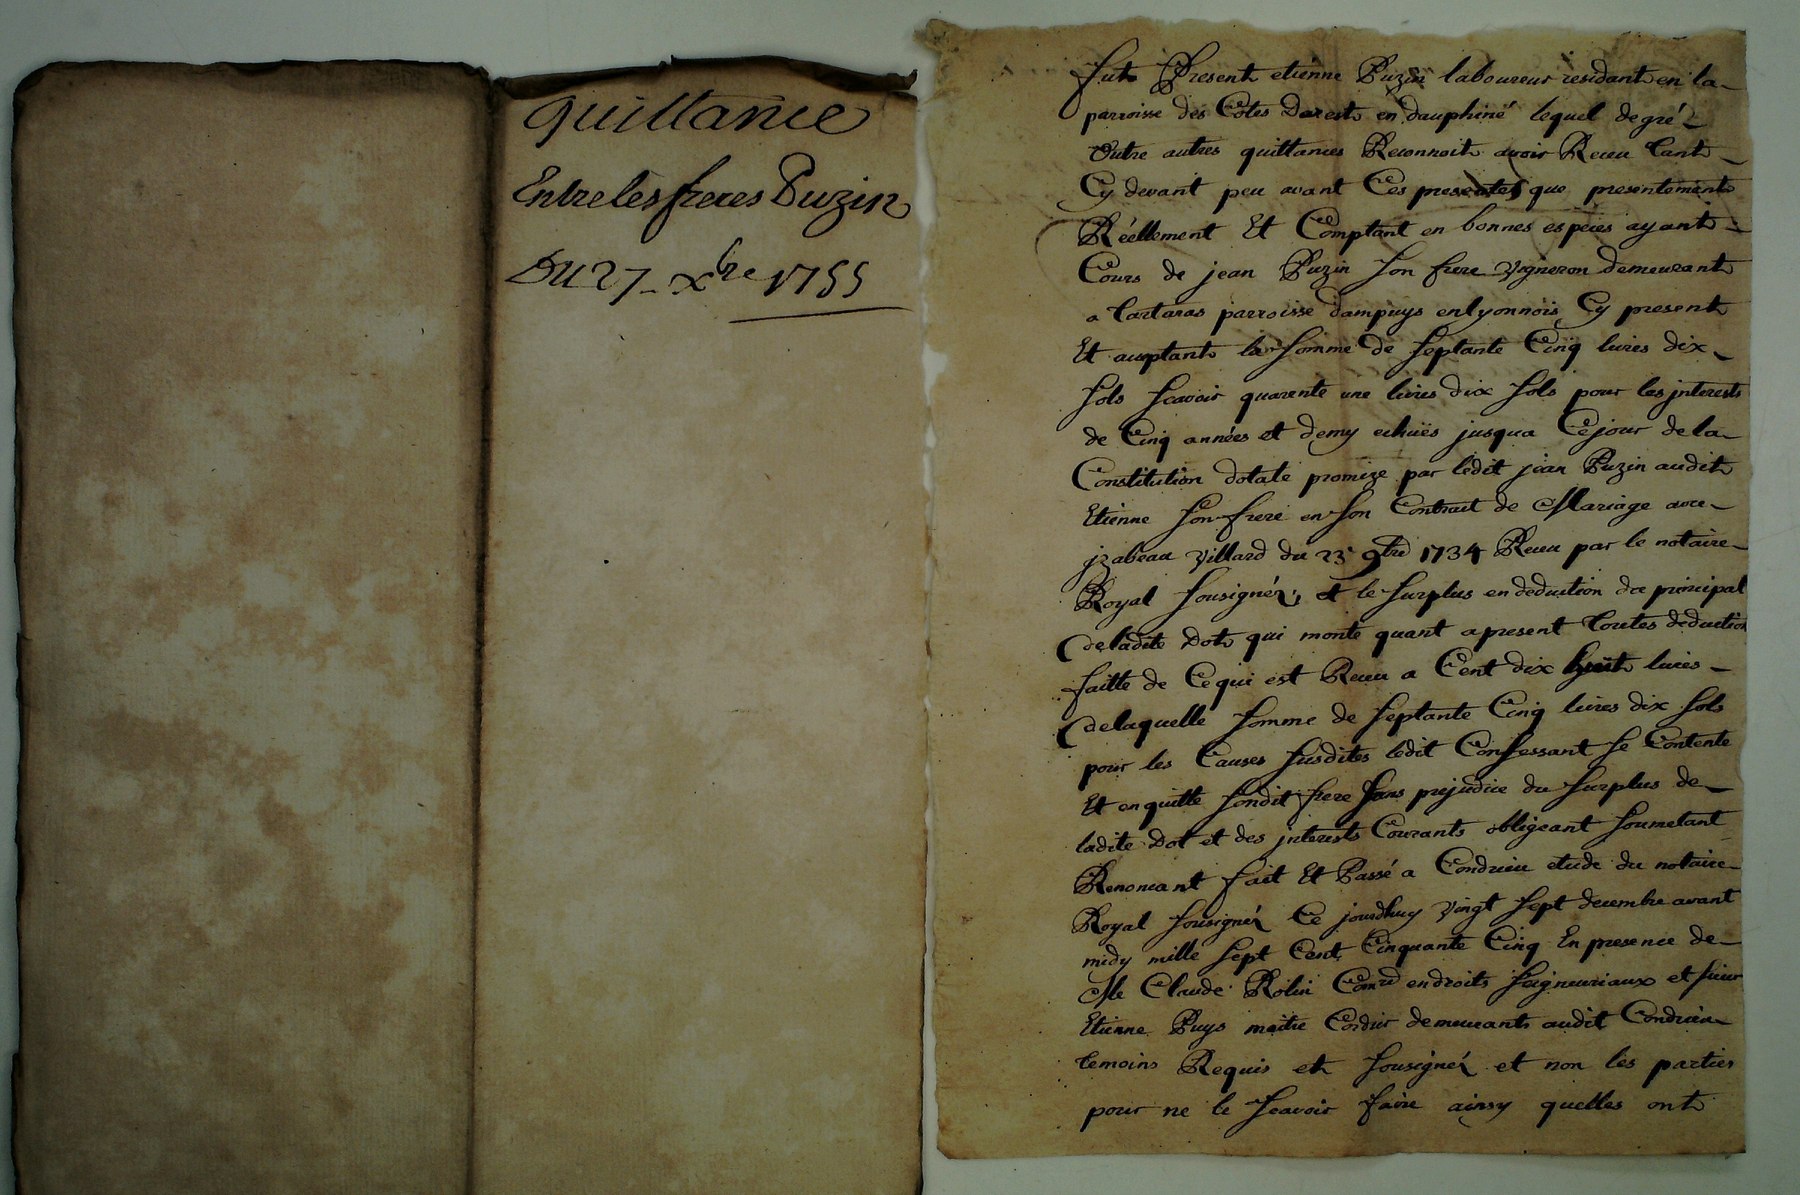 quittance
Entre les freres Puzin
Du 27 xbre 1755
fut Present etienne Puzin laboureur residant en la
parroisse des Côtes Darest en dauphiné lequel de gré
Outre autres quittances Reconnoit avoir Receu tant
Cy devant peu avant Ces presentes que presentement
Réellement Et Comptant en bonnes especes ayant
Cours de jean Puzin son frere vigneron demeurant
a tartaras parroisse dampuys en lyonnois Cy present
Et aceptant la somme de septante Cinq livres dix
sols scavoir quarente une livres dix sols pour les jnterests
de Cinq années et demy echuës jusqua Ce jour de la
Constitution dotale promize par ledit jean Puzin audit
Etienne son frere en son Contrait de Mariage avec
jzabeau villard du 23e 9bre 1734 Receu par le notaire
Royal sousigné, et le surplus en deduction du principal
de ladite Dot qui monte quant a present toutes deduction
faitte de Ce qui est Receu a Cent dix huit livres
de laquelle somme de septante Cinq livres dix sols
pour les Causes susdites ledit Confessant se Contente
Et en quitte sondit frere sans prejudice du surplus de
ladite Dot et des jnterests Courants obligeant soumetant
Renoncant fait Et Passé a Condrieu etude du notaire
Royal sousigné Ce jourdhuy vingt sept decembre avant
midy mille sept Cent Cinquante Cinq En presence de
Me Claude Rolin Comre en droits seigneuriaux et sieur
Etienne Puys maitre Cordier demeurants audit Condrieu
temoins Requis et sousignéz et non les parties
pour ne le scavoir faire ainsy quelles ont